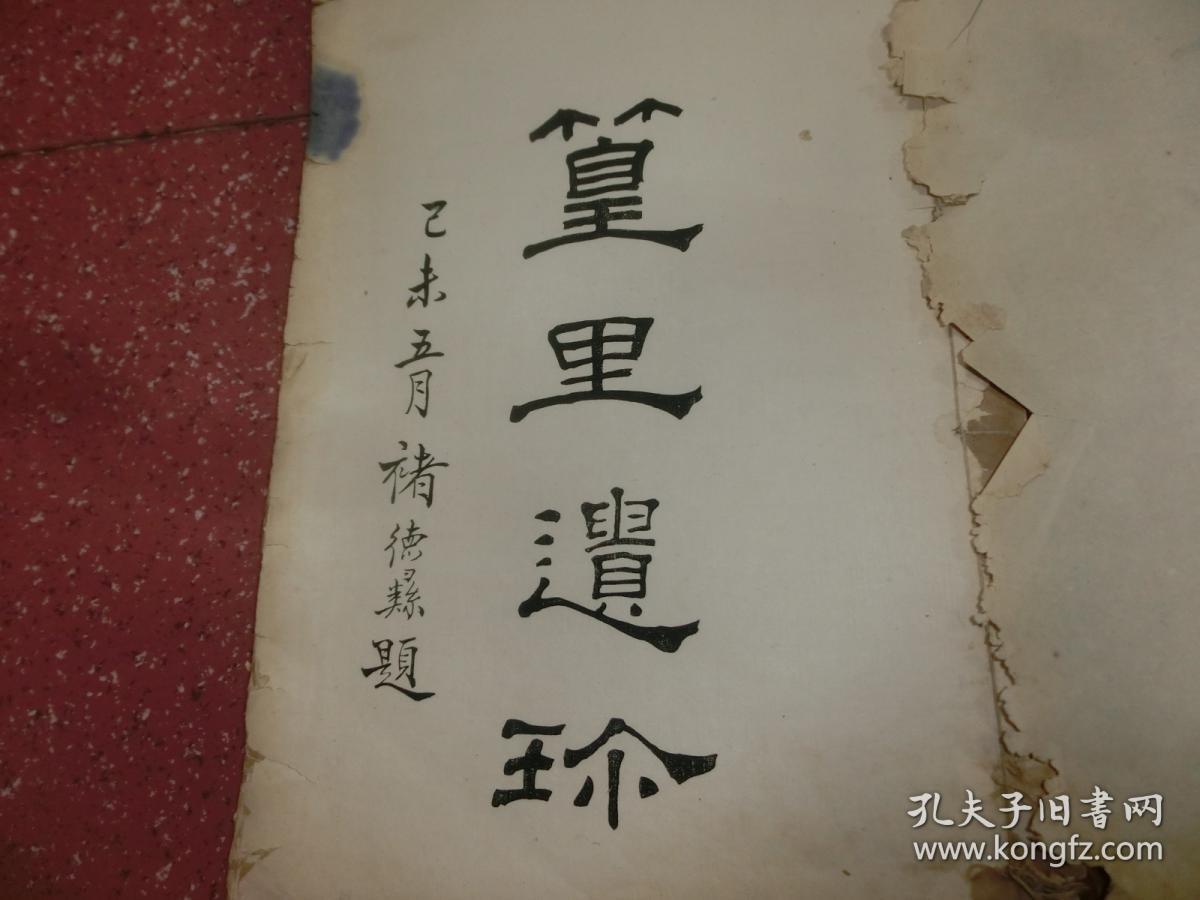 篁里遺珎
己未五月褚德彝題
孔夫子旧书网
www.kongfz.com